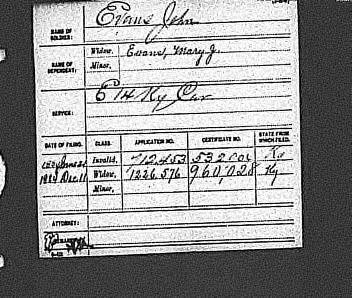 NAME OF SOLDIER: Evans John
NAME OF DEPENDENT: Widow, Evans, Mary J.
Minor,
SERVICE: E 14 Ky Cav
DATE OF FILING. CLASS. APPLICATION NO. CERTIFICATE NO. STATE FROM WHICH FILED.
Invalid, 712,453 Ky
Widow, 1226,576 960,028 Ky
Minor,
ATTORNEY: